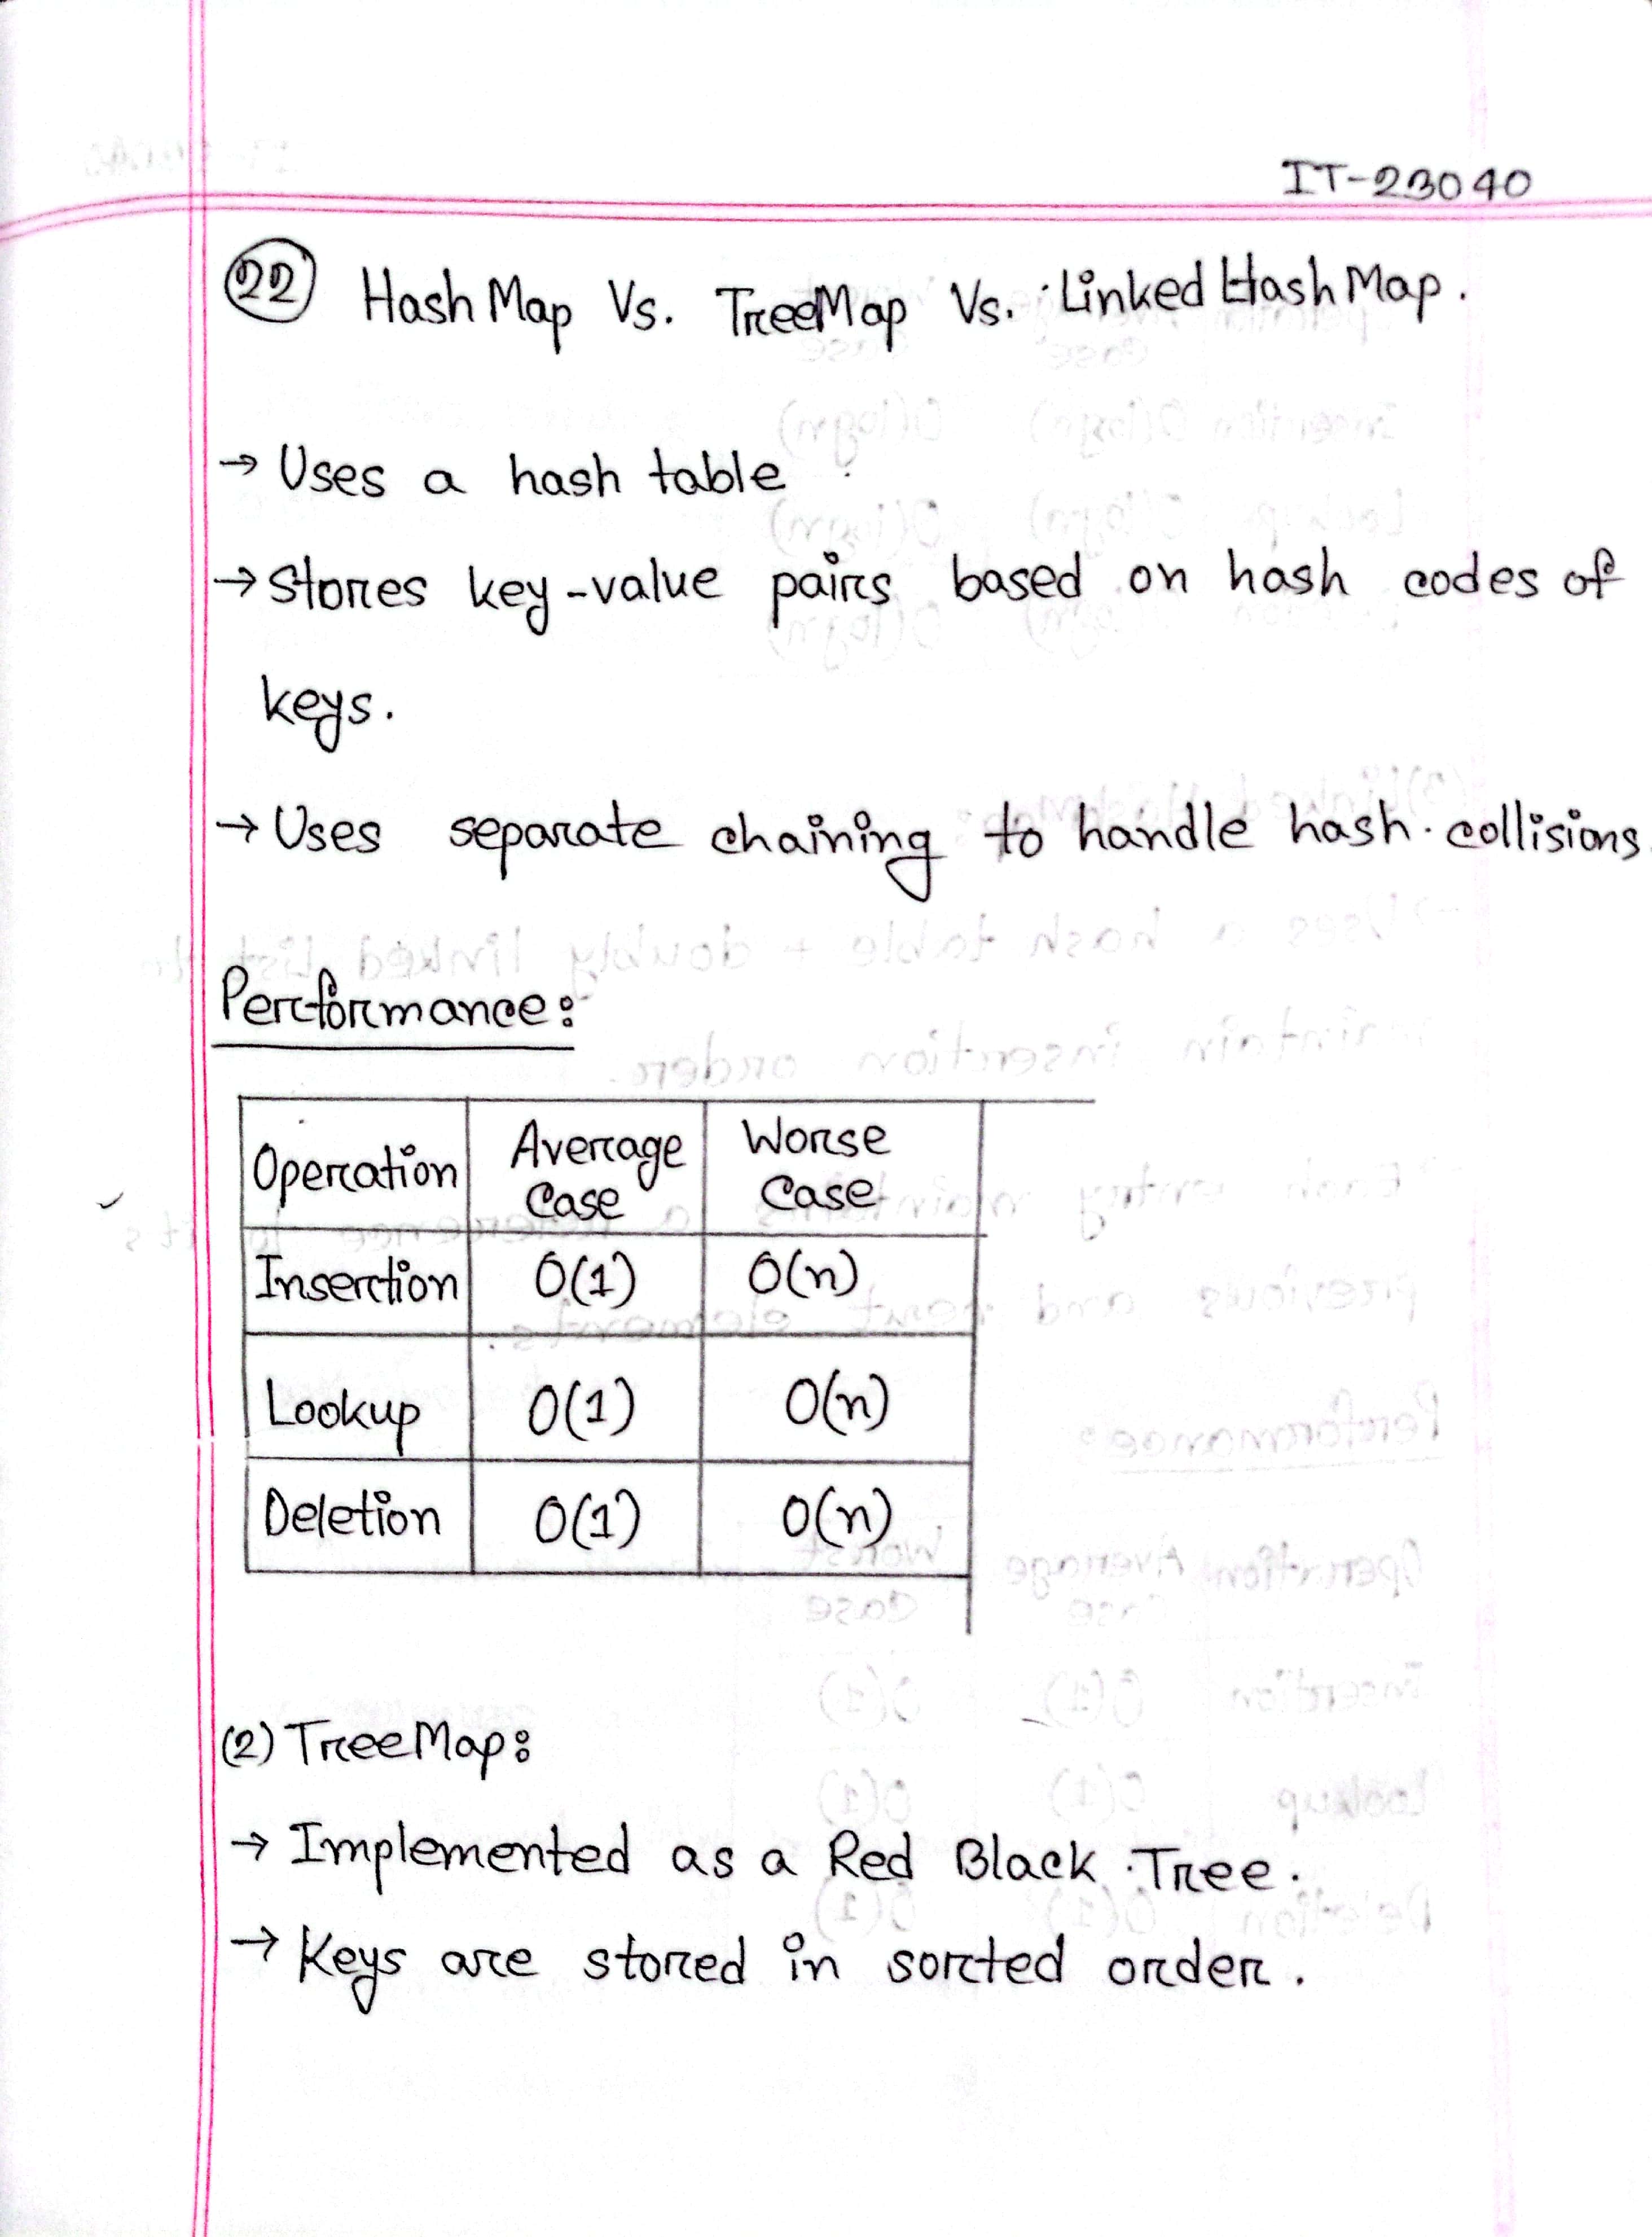 IT-23040
22 HashMap Vs. TreeMap Vs. Linked HashMap.
→ Uses a hash table
→ Stores key-value pairs based on hash codes of
keys.
→ Uses separate chaining to handle hash collisions
Performance:
Operation Average Case Worse Case
Insertion O(1) O(n)
Lookup O(1) O(n)
Deletion O(1) O(n)
(2) TreeMap:
→ Implemented as a Red Black Tree.
→ Keys are stored in sorted order.